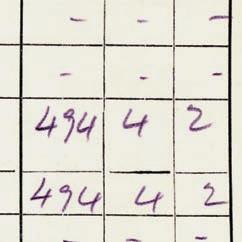 - - -
- - -
494 4 2
494 4 2
- - -